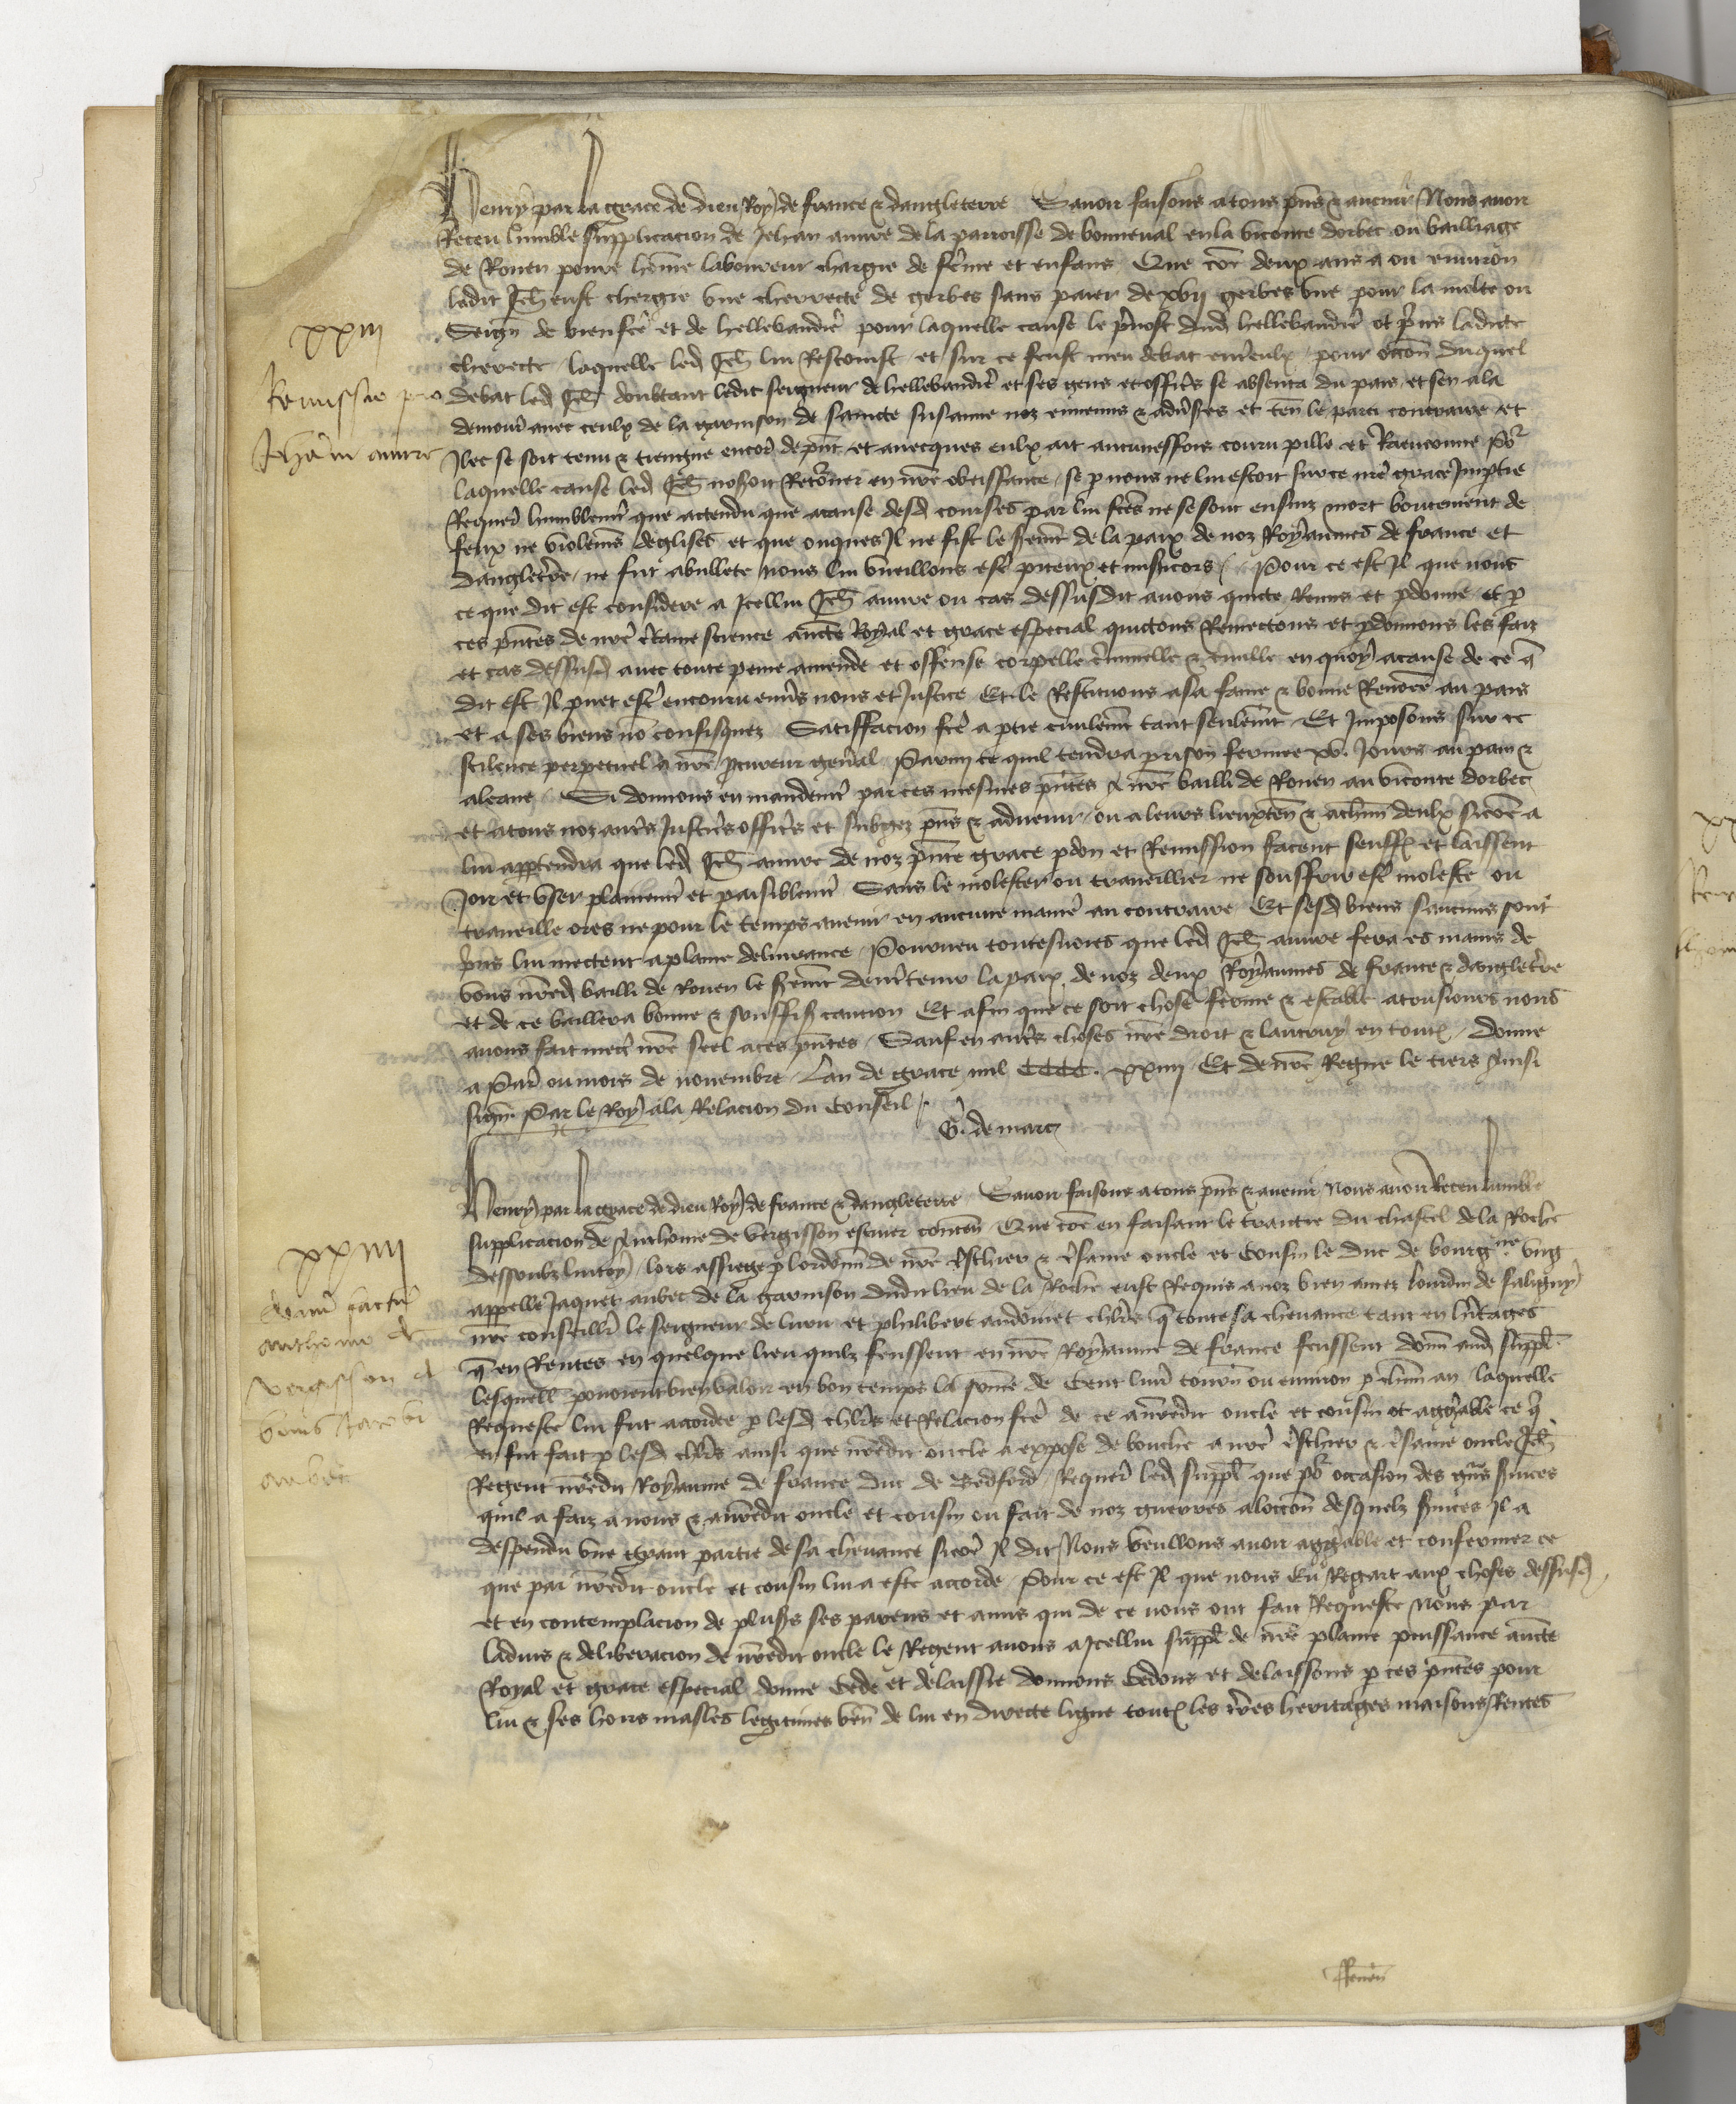 Henry par la grace de dieu Roy de france & dangleterre Savoir faisons a tous pns & avenir Nous avoir
Receu lumble supplicacion de Jehan auvre de la parroisse de bonneval en la viconte dorbec ou bailliage
de Rouen povre home laboureur chargie de feme et enfans Que come deux ans a ou environ
ledit Jeh eust chergie une cherrecte de gerbes sans paier de xvij gerbes une pour la molte ou
Seign de bienfce et de hellebaudier pour laquelle cause le pvost dud hellebaudier ot prins ladicte
cherrecte laquelle led Jeh lui Rescouist et sur ce feust meu debat entreulx pour occon duquel
debat led Jeh doubtant ledit seigneur de hellebaudier et ses gens et officrs se absenta du pais et sen ala
demourer avec ceulx de la garnison de saincte susanne noz ennemis & advsres et ten le parti contraire et
Ilec se soit tenu & tiengne encor de pnt et avecques eulx ait aucuneffois couru pille et Raenconne po
laquelle cause led Jeh noseroit Retorner en nre obeissance se p nous ne lui estoit sur ce nre grace Imptie
Requert humblemt que actendu que a cause desd courses par lui fces ne se sont ensuiz mort boutement de
feux ne violemens deglises et que onques Il ne fist le seremt de la paix de noz Royaumes de france et
dangleterre ne fut abullete Nous lui vueillons estre piteux et misicors Pour ce est Il que nous
ce que dit est considere a Icellui Jeh auvre ou cas dessusdit avons quicte Remis et pdonne et p
ces pntes de nre ctaine science aucte Royal et grace especial quictons Remectons et pdonnons les faiz
et cas dessusd avec toute peine amende et offense corpelle criminelle & civille en quoy a cause de ce q
dit est Il puet estre encouru envs nous et Justice Et le Restituons a sa fame & bonne Renomee au pais
et a ses biens no confisquez Satiffacion fce a ptie civilemt tant seulemt Et Imposons sur ce
scilence perpetuel a nre pcureur genal Parmi ce quil tendra prison fermee xv. Jours au pain &
a leaue Si donnons en mandemt par ces mesmes pntes a nre bailli de Rouen au viconte dorbec
et a tous noz autrs Justicrs officrs et subgez pns & advenir ou a leurs lieuxten & a chun deulx sicome a
lui apptendra que led Jeh auvre de noz pnte grace pdon et Remission facent seuffr et laissent
Joir et user plainemt et paisiblemt Sans le molester ou traveillier ne souffrir estre moleste ou
traveille ores ne pour le temps avenir en aucune maniere au contraire Et sesd biens saucuns sont
prins lui mectent a plaine delivrance Pourveu toutesvoies que led Jeh auvre fera es mains de
vous nred bailli de Rouen le seremt devr tenir la paix de noz deux Royaumes de france & dangleterre
et de ce baillera bonne & souffis caucion Et afin que ce soit chose ferme & estable a tousiours nous
avons fait mectre nre seel a ces pntes Sauf en autrs choses nre droit & lautruy en toutes Donne
a Paris ou mois de novembre Lan de grace mil CCCC. xxiiij Et de nre Regne le tiers Ainsi
sign. Par le Roy a la Relacion du Conseil
G. de marc
xxiij
Remissio pro
Johanne auvre
Henry par la grace de dieu Roy de france & dangleterre Savoir faisons a tous pns & avenir Nous avoir Receu lumble
supplicacion de Anthoine de vergisson escuier conten Que come en faisant le traictie du chastel de la Roche
dessoubz lintoy lors assiege p lordonn de nre treschier & tresame oncle et Cousin le duc de bourgne ung
appelle Jaquet aubec de la garnison dudit lieu de la Roche eust Requis a noz bien amez lourdin de saligny
nre conseiller le seigneur de luru et philibert andoinet chlrs q toute sa chevance tant en heritages
q en Rentes en quelque lieu quilz feussent en nre Royaume de france feussent donn aud suppl
lesquelles povoient bien valoir en bon temps la some de Cent livres tourn ou environ p chun an laquelle
Requeste lui fut accordee p lesd chlrs et Relacion fce de ce a nredit oncle et cousin ot aggreable ce q
en fut fait p lesd chlrs ainsi que nredit oncle a expose de bouche a nre treschier & tresame oncle Jeh
Regent nredit Royaume de france duc de Bedford Requert led suppl que po occasion des grans services
quil a faiz a nous & a nredit oncle et cousin ou fait de noz guerres a loccon desquelz services Il a
despendu une grant partie de sa chevance sicome Il dit Nous veullons avoir aggreable et confermer ce
que par nredit oncle et cousin lui a este accorde Pour ce est Il que nous Eu Regart aux choses dessusd
et en contemplacion de plusrs ses parens et amis qui de ce nous ont fait Requeste Nous par
ladvis & deliberacion de nredit oncle le Regent avons a Icellui suppl de nre plaine puissance aucte
Royal et grace especial donne Cede et delaissie donnons Cedons et delaissons p ces pntes pour
lui & ses hoirs masles legitimes ven de lui en directe ligne toutes les terres heritages maisons Rentes
xxiiij
donum factum
anthonio de
vergisson de
bonis Jacobi
aubec
Reven